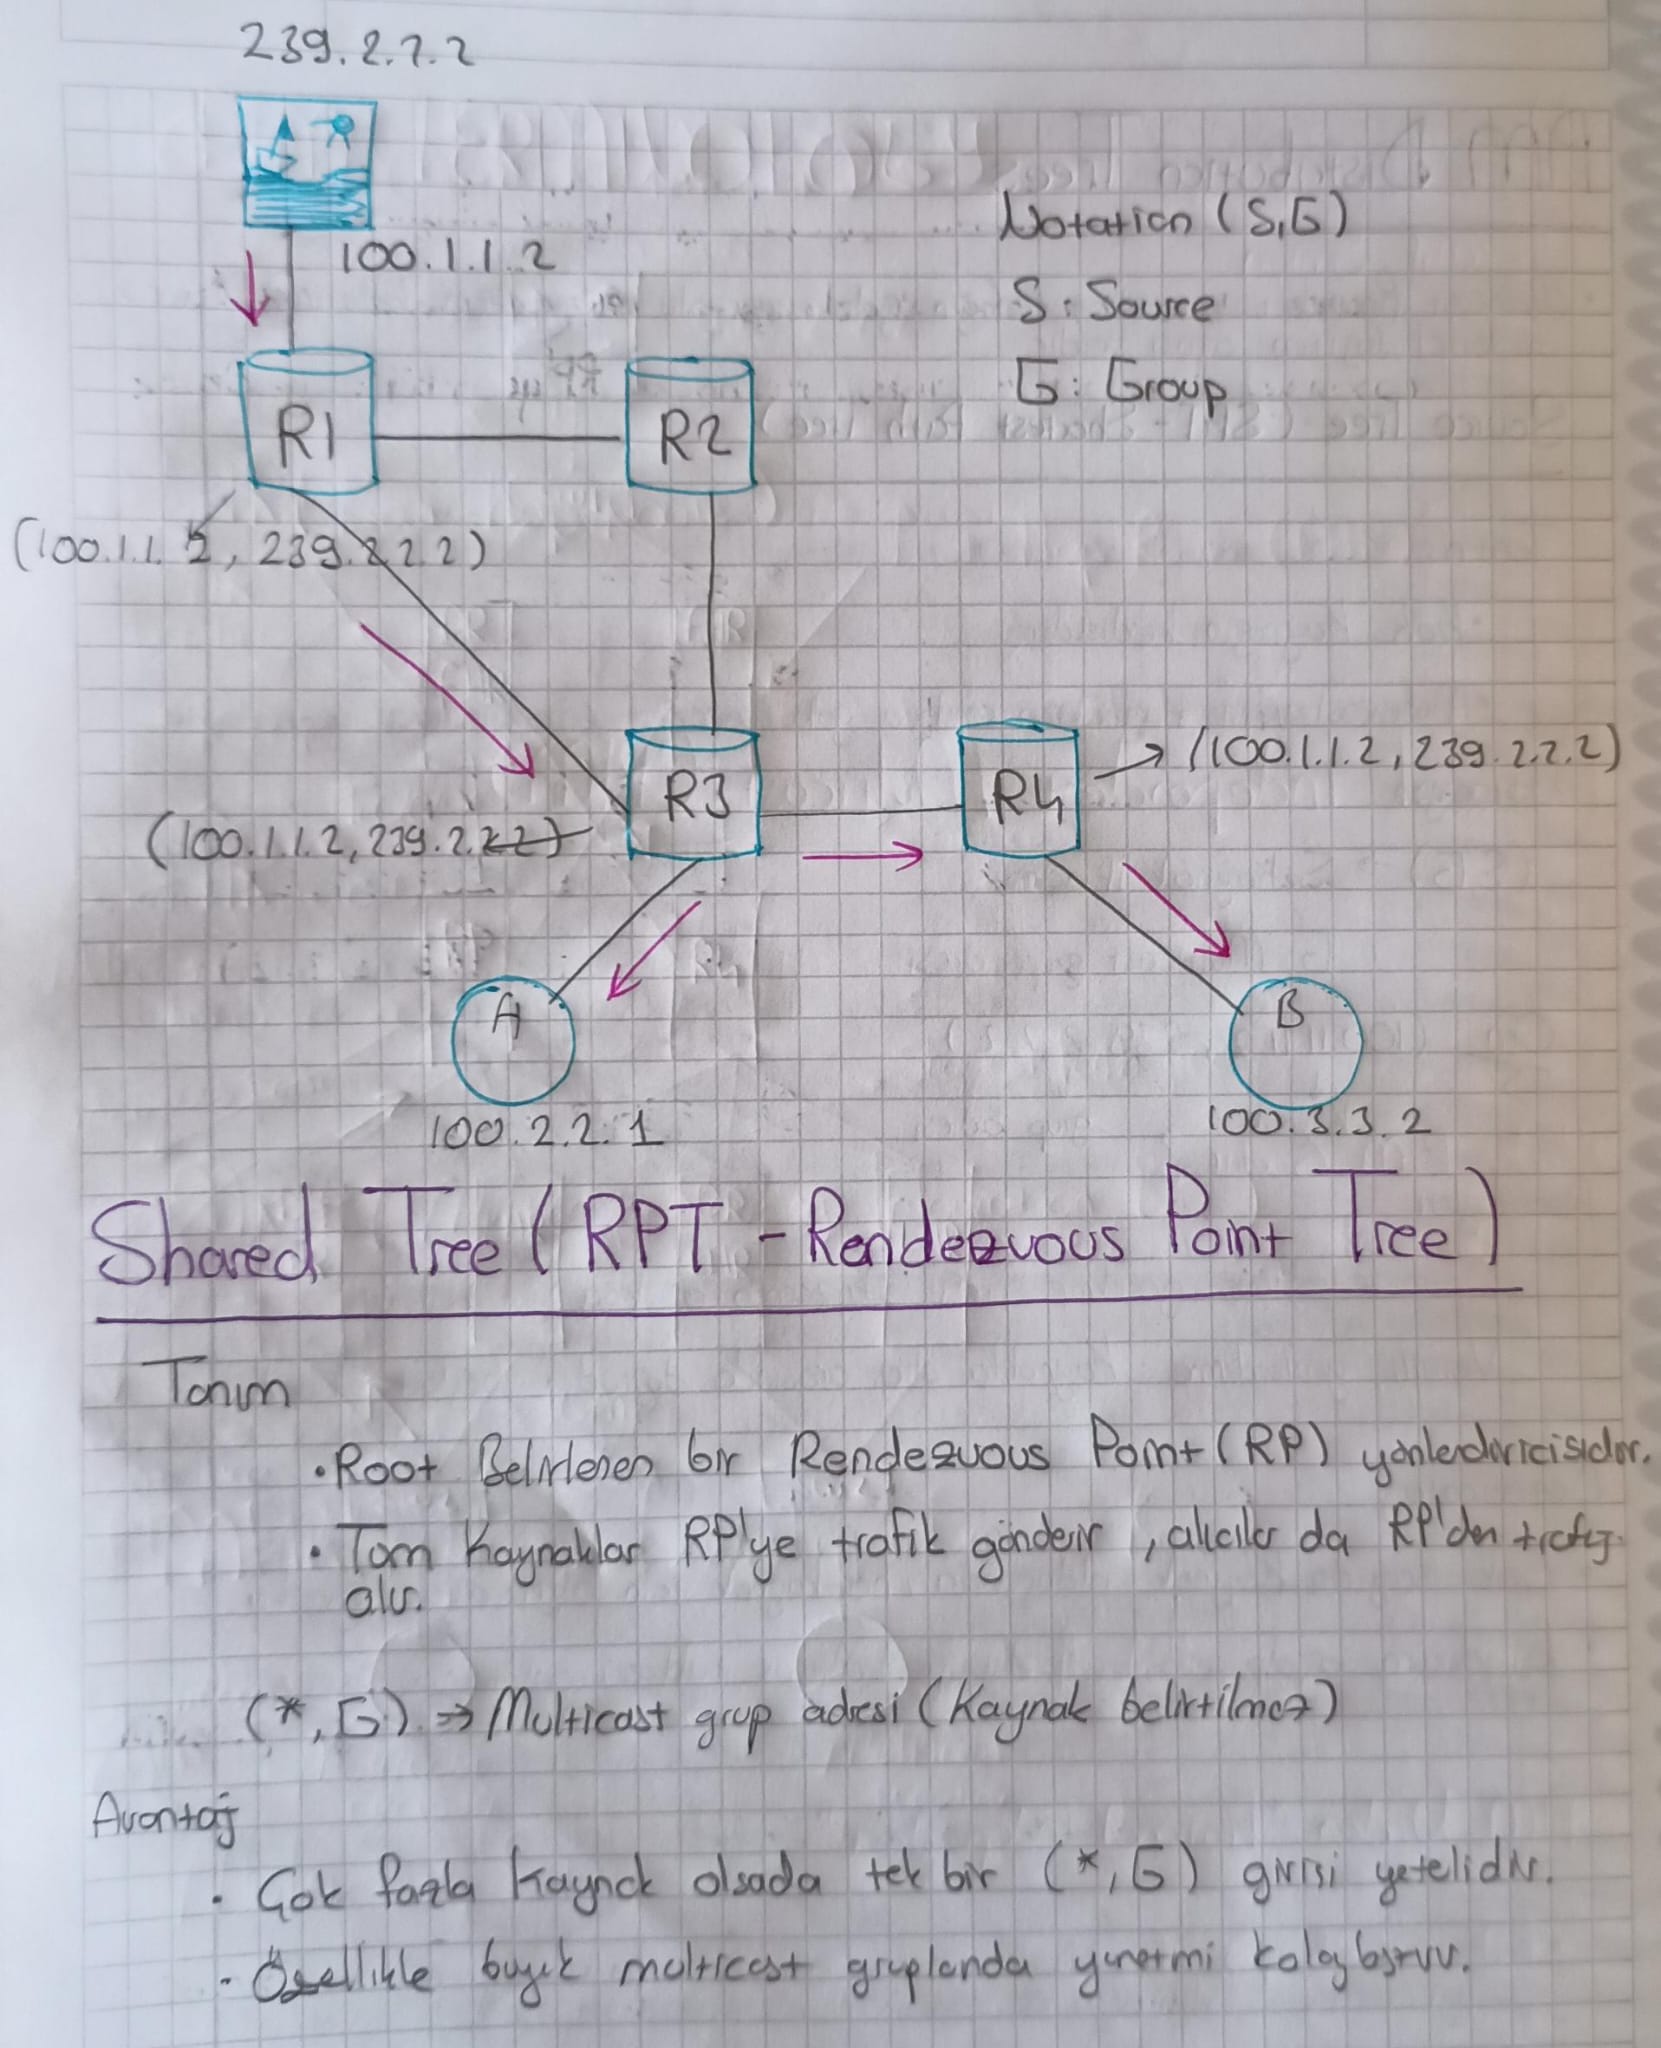 239.2.2.2
100.1.1.2
Notation (S,G)
S: Source
G: Group
R1
R2
(100.1.1.2, 239.2.2.2)
R3
R4
(100.1.1.2, 239.2.2.2)
(100.1.1.2, 239.2.2.2)
A
B
100.2.2.1
100.3.3.2
Shared Tree (RPT - Rendezvous Point Tree)
Tanım
• Root Belirlenen bir Rendezvous Point (RP) yönlendiricisidir.
• Tüm Kaynaklar RP'ye trafik gönderir, alıcılar da RP'den trafiği
alır.
(*, G) ⇒ Multicast grup adresi (Kaynak belirtilmez)
Avantaj
• Çok fazla Kaynak olsada tek bir (*, G) girişi yeterlidir.
• Özellikle büyük multicast gruplarında yönetimi kolaylaştırır.